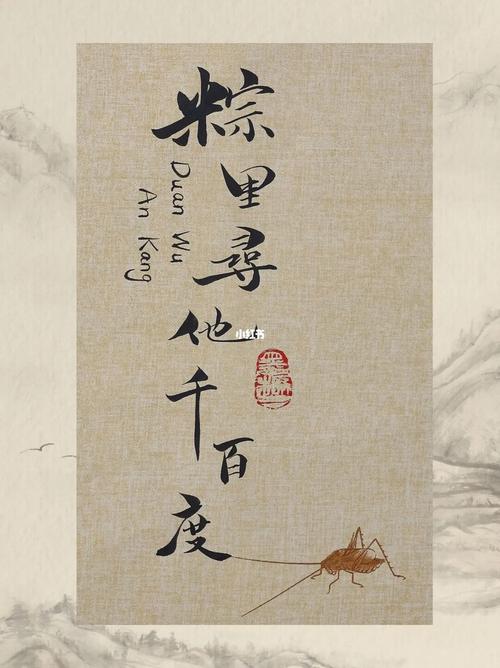 粽里尋他千百度
Duan Wu
An Kang
小红书